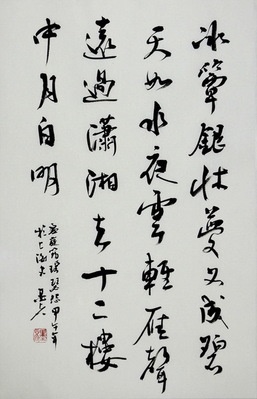 冰簟銀牀夢不成碧
天如水夜雲輕雁聲
遠過瀟湘去十二樓
中月自明
溫庭筠瑤瑟怨甲午年
於上海